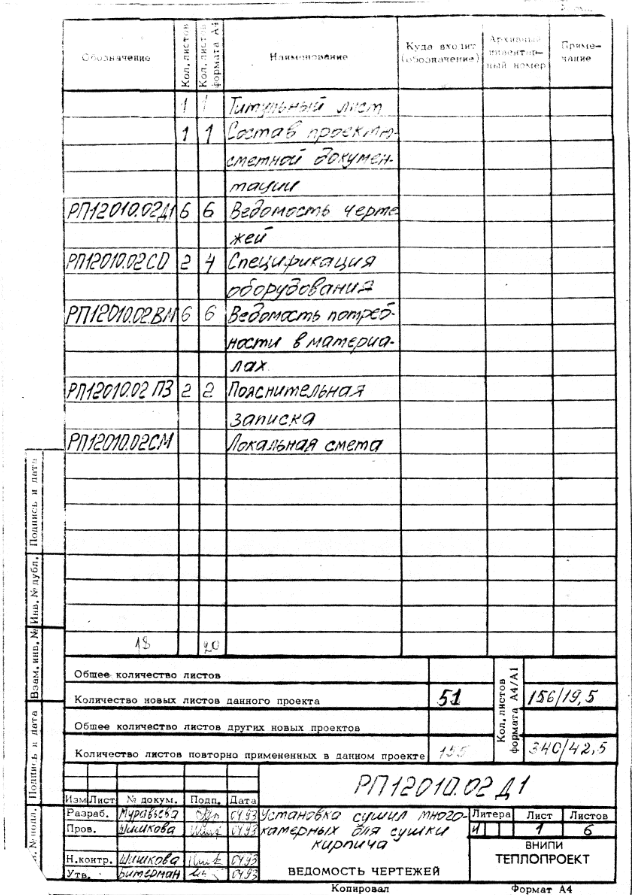 Обозначение Кол. листов Кол. листов формата А4 Наименование Куда входит (обозначение) Архивный инвентарный номер Примечание
1 1 Титульный лист
1 1 Состав проектно-
сметной докумен-
тации
РП12010.02Д1 6 6 Ведомость черте
жей
РП12010.02СО 2 4 Спецификация
оборудования
РП12010.02ВМ 6 6 Ведомость потреб-
ности в материа-
лах
РП12010.02 ПЗ 2 2 Пояснительная
записка
РП12010.02СМ Локальная смета
18 20
Общее количество листов
Количество новых листов данного проекта 51 156/19,5
Общее количество листов других новых проектов
Количество листов повторно примененных в данном проекте 155 340/42,5
Кол. листов
формата А4/А1
Подпись и дата
Инв. № дубл.
Взам. инв. №
Подпись и дата
РП12010.02 Д1
Изм Лист № докум. Подп. Дата
Разраб. Муравьева 0493 Установка сушил много- Литера Лист Листов
Пров. Шишкова 0493 камерных для сушки И 1 6
кирпича
ВНИПИ
Н.контр. Шишкова 0493 ТЕПЛОПРОЕКТ
Утв. 0493 ВЕДОМОСТЬ ЧЕРТЕЖЕЙ
Копировал Формат А4